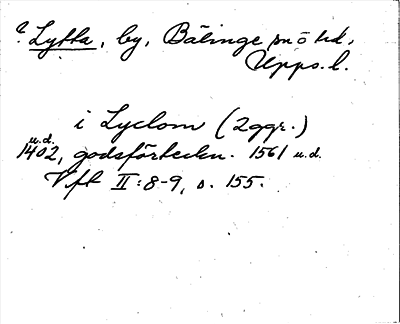 ? Lytta, by, Bälinge sn o hd,
Upps. l.
i Lyclom (2ggr.)
u.d.
1402, godsförteckn. 1561 u.d.
Vft II:8-9, s. 155.